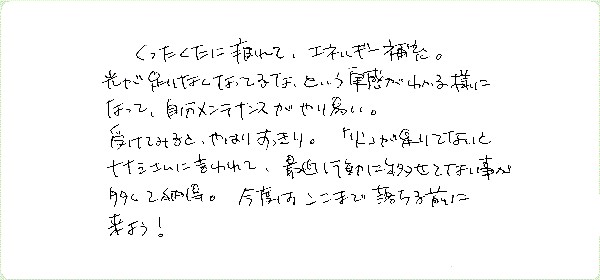 くったくたに疲れて、エネルギー補充。
光が足りなくなってるな、という実感がわかる様に
なって、自分メンテナンスがやり易い。
受けてみると、やはりすっきり。「火」が足りてないと
ナナミさんに言われて、最近行動に移せてない事が
多くて納得。今度はここまで落ちる前に
来よう!